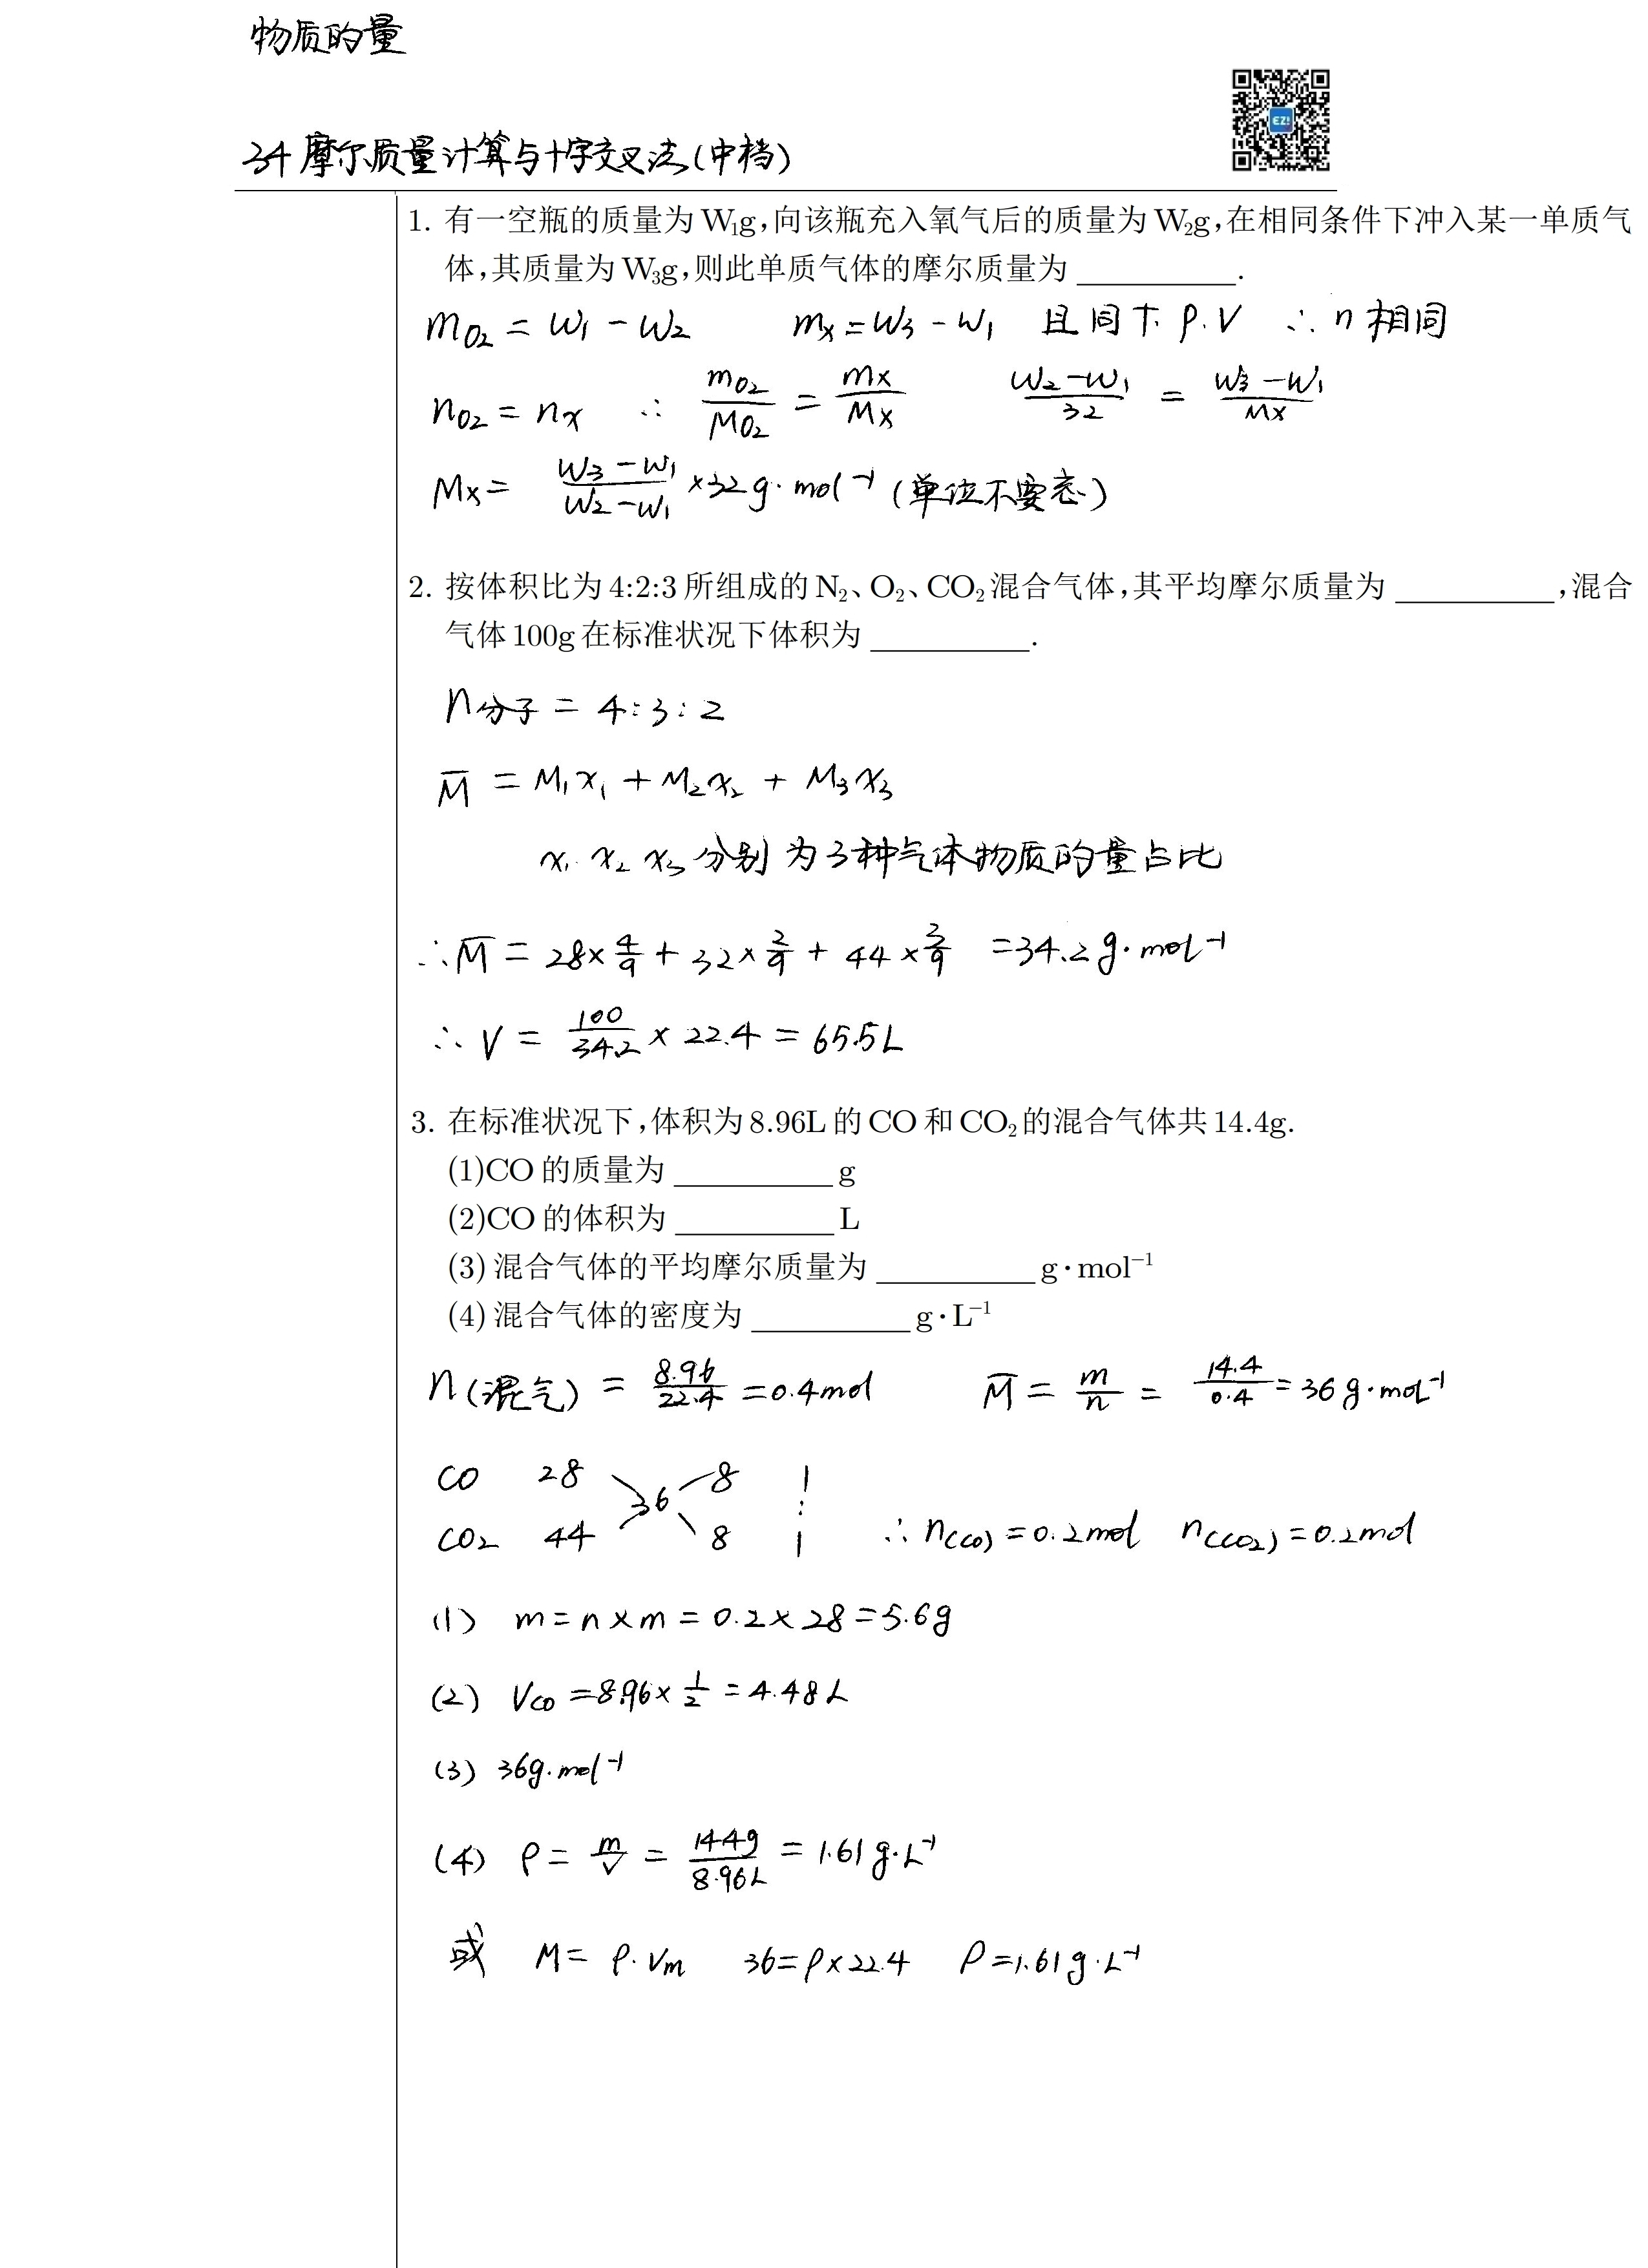 物质的量
34 摩尔质量计算与十字交叉法(中档)
1. 有一空瓶的质量为W₁g,向该瓶充入氧气后的质量为W₂g,在相同条件下冲入某一单质气
体,其质量为W₃g,则此单质气体的摩尔质量为 __________.
m O₂ = W₁ - W₂  mx = W₃ - W₁ 且同T. P. V ∴ n 相同
n O₂ = n x ∴ m O₂/M O₂ = mx/Mx  (W₂-W₁)/32 = (W₃-W₁)/Mx
Mx = (W₃-W₁)/(W₂-W₁) ×32 g·mol⁻¹ (单位不要忘)
2. 按体积比为4:2:3所组成的N₂、O₂、CO₂混合气体,其平均摩尔质量为 __________,混合
气体100g在标准状况下体积为 __________.
n分子 = 4:3:2
M̄ = M₁x₁ + M₂x₂ + M₃x₃
x₁ x₂ x₃ 分别为3种气体物质的量占比
∴ M̄ = 28×4/9 + 32×2/9 + 44×3/9 = 34.2 g·mol⁻¹
∴ V = 100/34.2 × 22.4 = 65.5L
3. 在标准状况下,体积为8.96L的CO和CO₂的混合气体共14.4g.
(1)CO的质量为 __________ g
(2)CO的体积为 __________ L
(3)混合气体的平均摩尔质量为 __________ g·mol⁻¹
(4)混合气体的密度为 __________ g·L⁻¹
n(混气) = 8.96/22.4 = 0.4mol  M̄ = m/n = 14.4/0.4 = 36 g·mol⁻¹
CO 28 8 1
36 :
CO₂ 44 8 1 ∴ n(CO) = 0.2mol n(CO₂) = 0.2mol
(1) m = n×m = 0.2×28 = 5.6g
(2) VCO = 8.96×1/2 = 4.48L
(3) 36g·mol⁻¹
(4) ρ = m/V = 14.4g/8.96L = 1.61 g·L⁻¹
或 M = ρ·Vm 36 = ρ×22.4 ρ = 1.61 g·L⁻¹